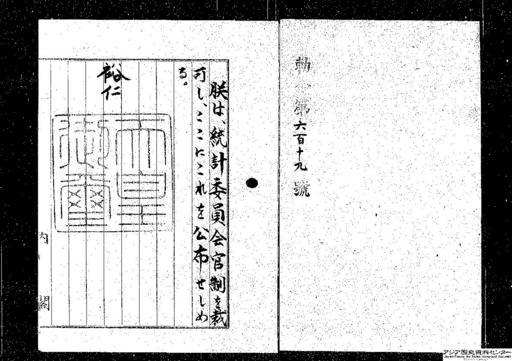 勅令第六百十九號
朕は、統計委員会官制を裁
可し、ここにこれを公布せしめ
る。
裕仁
天皇
御璽
内閣
アジア歴史資料センター